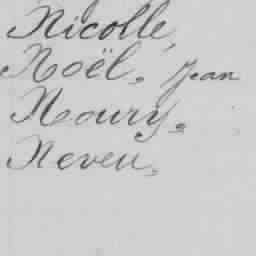 Nicolle,
Noël. Jean
Noury.
Neveu.